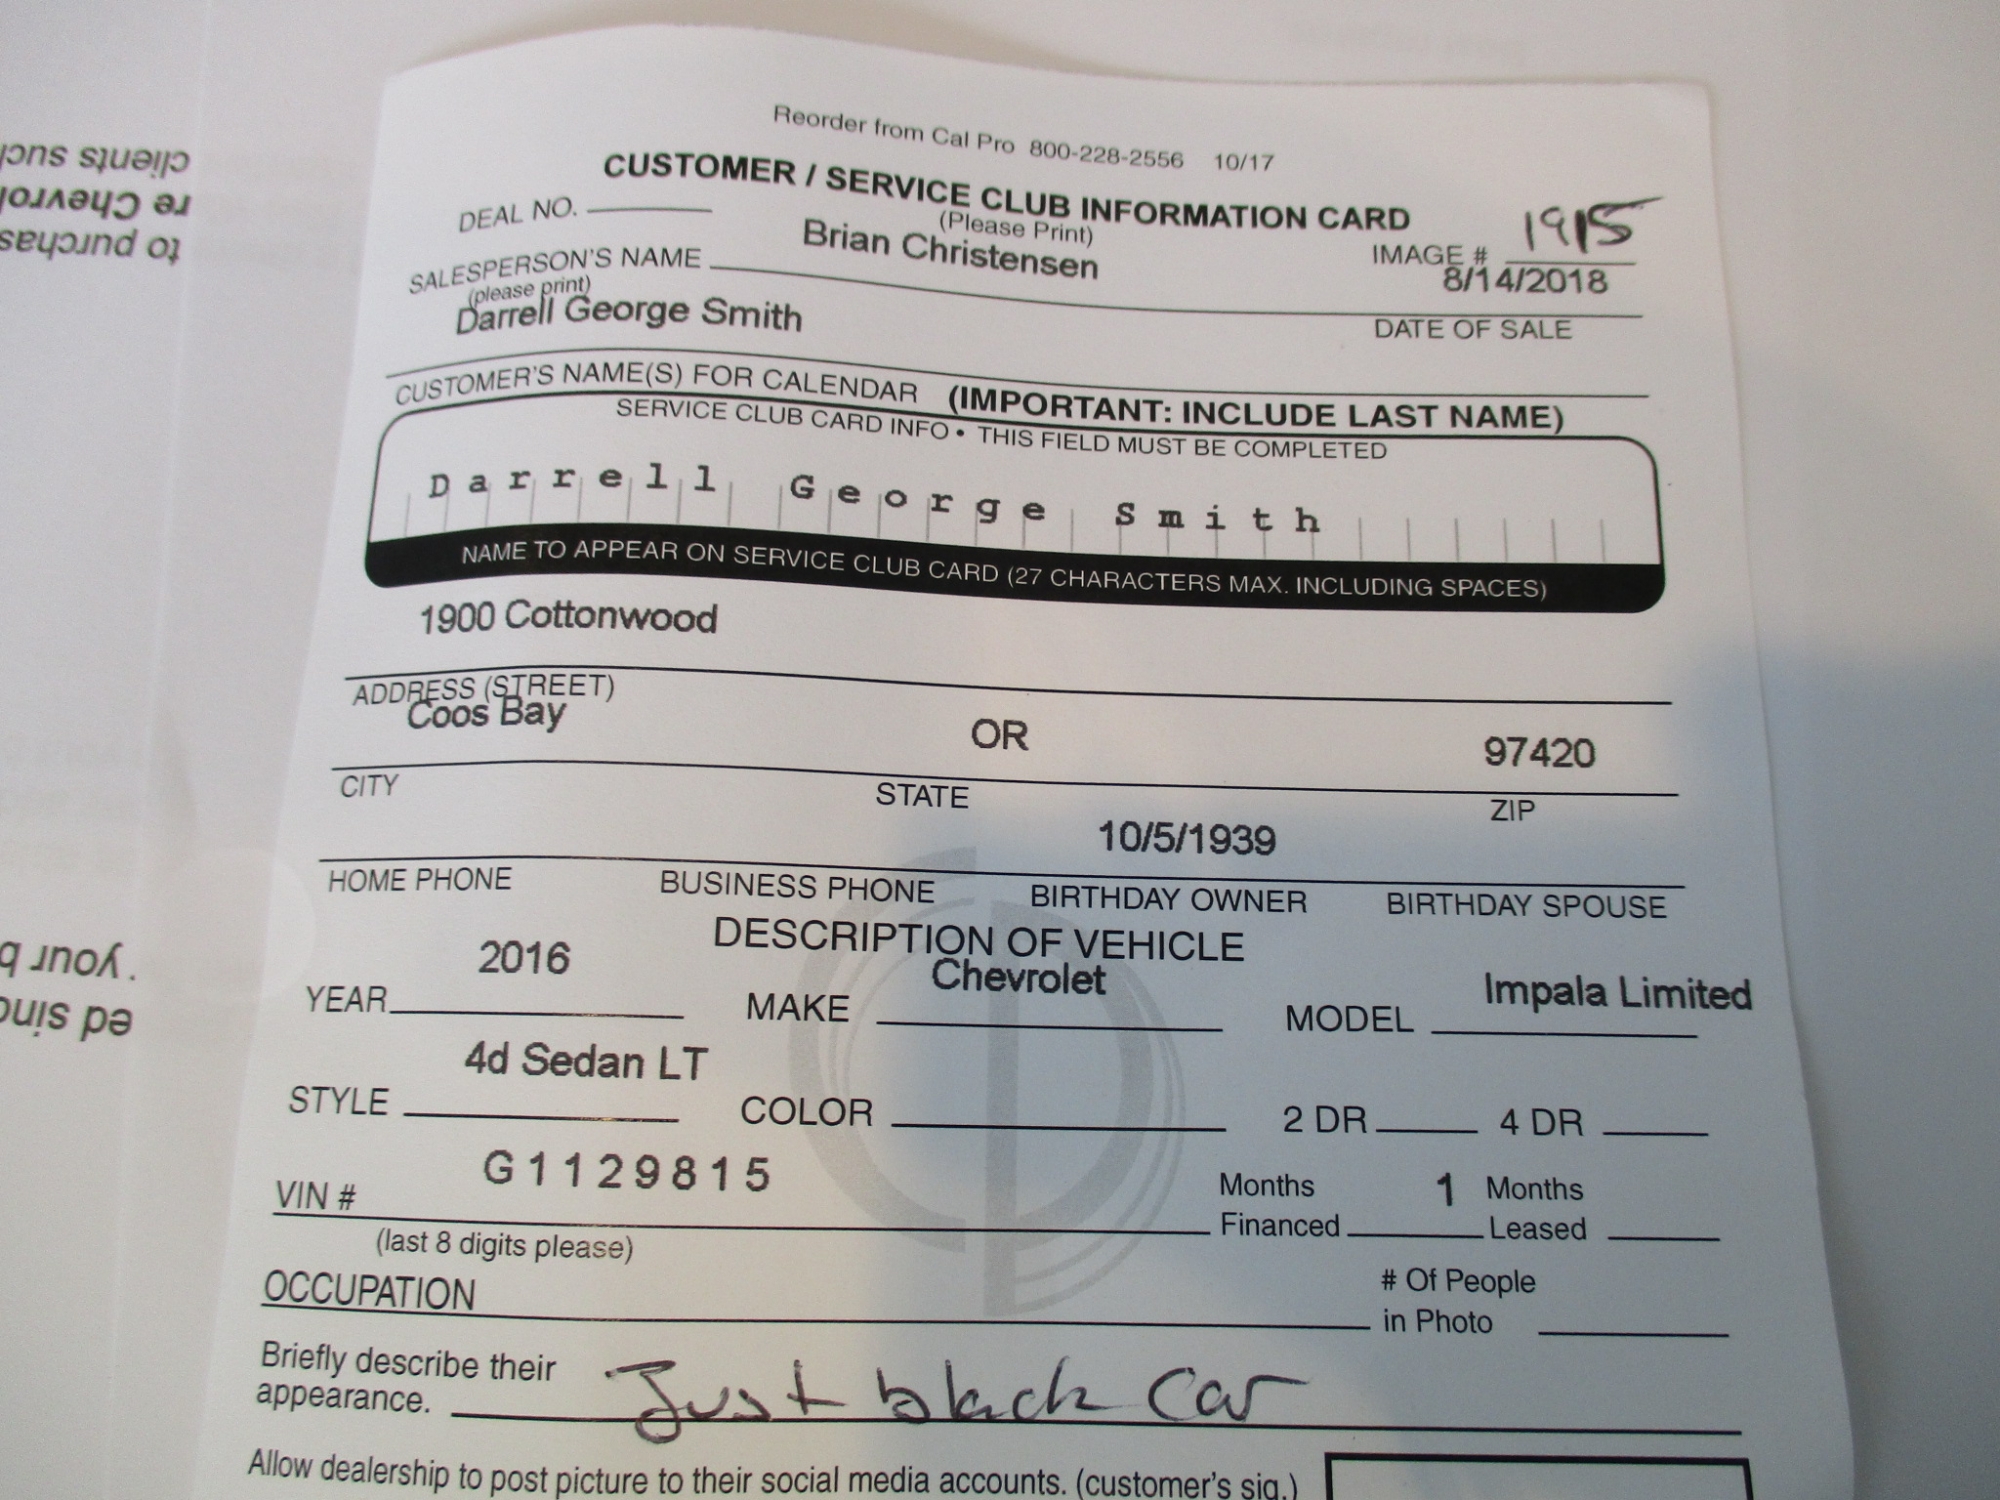 Reorder from Cal Pro 800-228-2556 10/17
CUSTOMER / SERVICE CLUB INFORMATION CARD
(Please Print)
DEAL NO.
IMAGE # 1915
SALESPERSON'S NAME Brian Christensen
(please print)
8/14/2018
DATE OF SALE
Darrell George Smith
CUSTOMER'S NAME(S) FOR CALENDAR (IMPORTANT: INCLUDE LAST NAME)
SERVICE CLUB CARD INFO • THIS FIELD MUST BE COMPLETED
Darrell George Smith
NAME TO APPEAR ON SERVICE CLUB CARD (27 CHARACTERS MAX. INCLUDING SPACES)
1900 Cottonwood
ADDRESS (STREET)
Coos Bay OR 97420
CITY STATE ZIP
10/5/1939
HOME PHONE BUSINESS PHONE BIRTHDAY OWNER BIRTHDAY SPOUSE
DESCRIPTION OF VEHICLE
YEAR 2016 MAKE Chevrolet MODEL Impala Limited
STYLE 4d Sedan LT COLOR 2 DR 4 DR
VIN # G1129815
(last 8 digits please)
Months Financed 1 Months Leased
OCCUPATION
# Of People
in Photo
Briefly describe their
appearance. Just black car
Allow dealership to post picture to their social media accounts. (customer's sig.)
clients such
re Chevrol
to purchas
your b
ed sinc